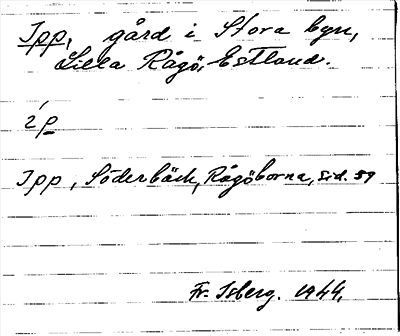 Ipp, gård i Stora byn,
Lilla Rågö, Estland.
íp
Ipp, Söderbäck, Rågöborna, Sid. 59
Fr. Isberg. 1944.